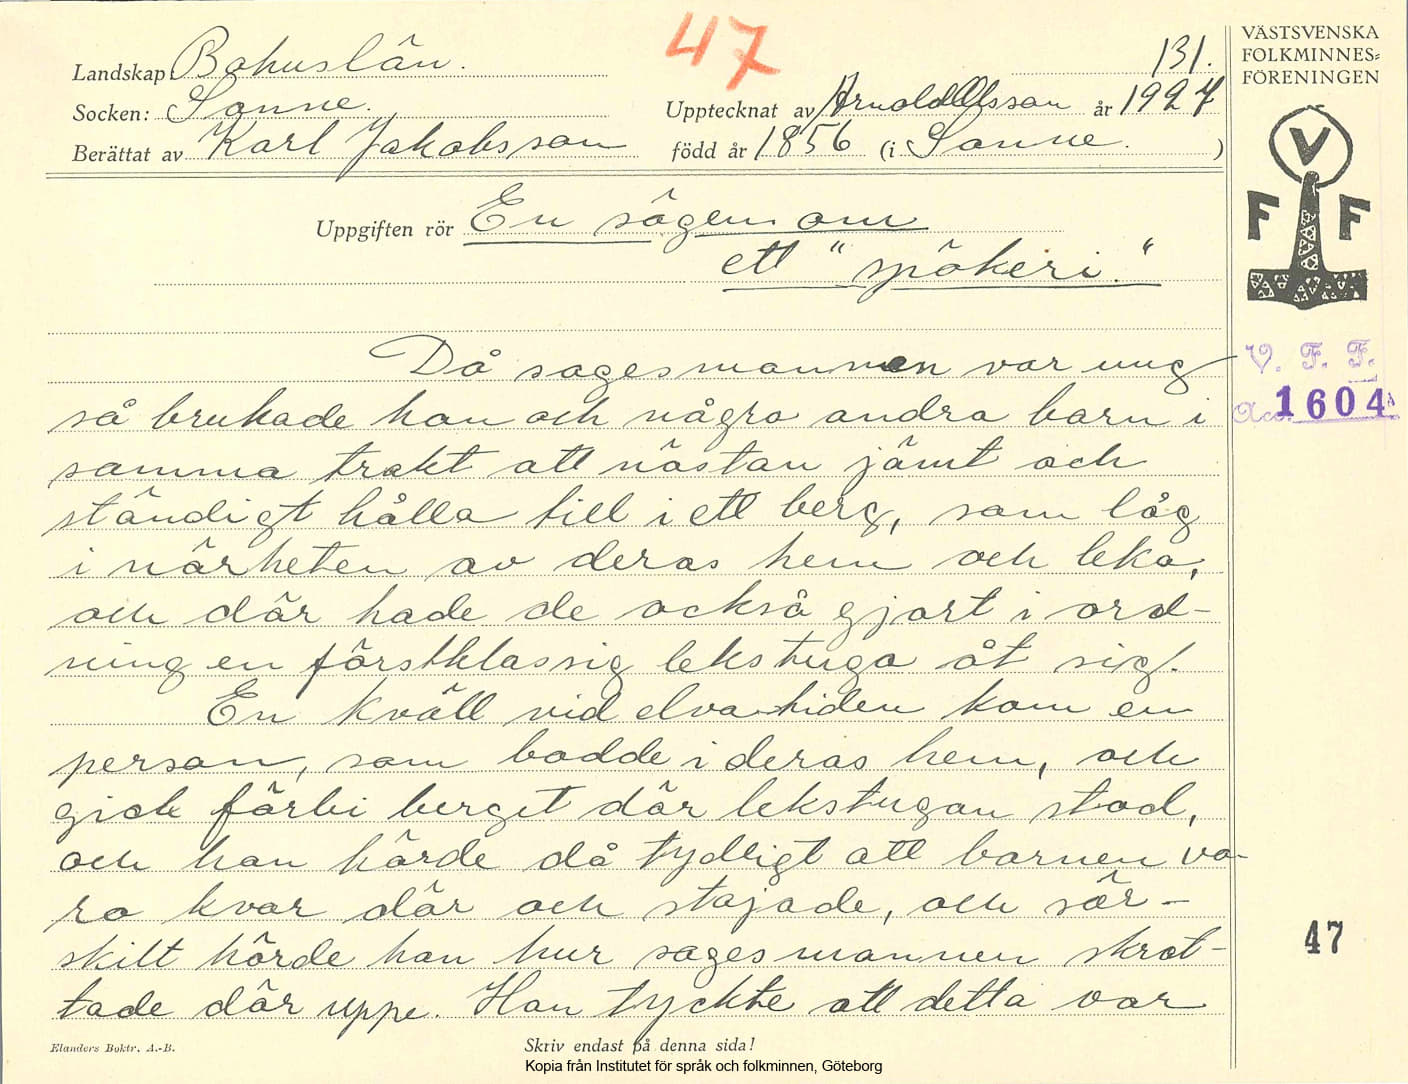 47
131.
Landskap: Bohuslän.
Socken: Sanne.
Upptecknat av Arnold Olsson år 1927
Berättat av Karl Jakobsson
född år 1856 (i Sanne.)
VÄSTSVENSKA
FOLKMINNES=
FÖRENINGEN
V
F F
Uppgiften rör En sägen om
ett "spökeri."
Då sagesmannen var ung
så brukade han och några andra barn i
samma trakt att nästan jämt och
ständigt hålla till i ett berg, som låg
i närheten av deras hem och leka,
och där hade de också gjort i ord-
ning en förstklassig lekstuga åt sig.
En kväll vid elva-tiden kom en
person, som bodde i deras hem, och
gick förbi berget där lekstugan stod,
och han hörde då tydligt att barnen va-
ra kvar där och stajade, och sär-
skilt hörde han hur sagesmannen skrat-
tade där uppe. Han tyckte att detta var
V. F. F.
Acc. 1604
47
Elanders Boktr. A.-B.
Skriv endast på denna sida!
Kopia från Institutet för språk och folkminnen, Göteborg